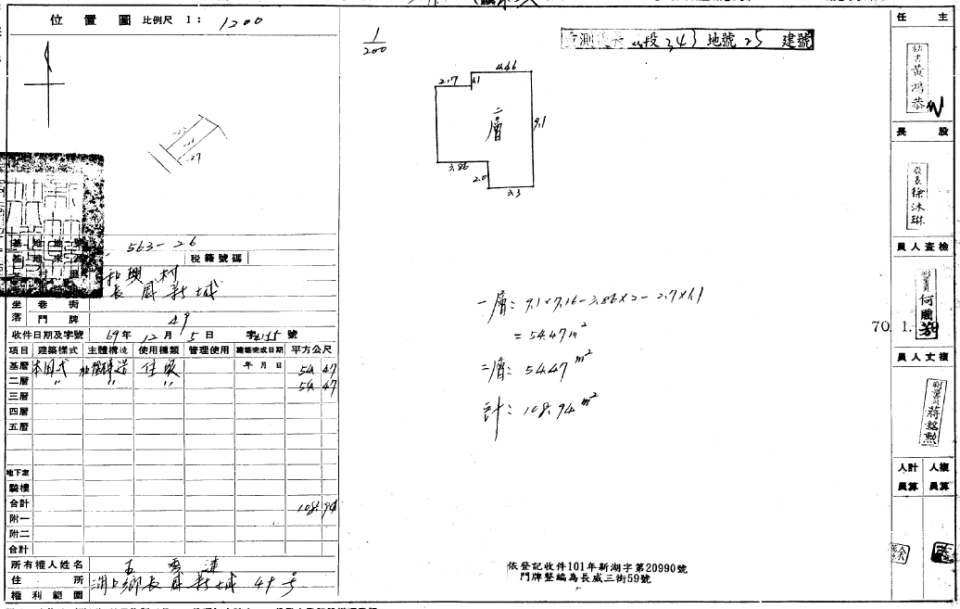 位置圖 比例尺 1：1200
1/200
段 343 地號 25 建號
2.17
1.1
4.46
二層
9.1
3.86
2.0
3.3
563-26
稅籍號碼
和興村
長威新城
坐 巷 街
落 門 牌 49
收件日期及字號 69年12月5日 字 號
項目 建築樣式 主體構造 使用種類 管理使用 建築完成日期 平方公尺
基層 本國式 住家 年 月 日 54 47
二層 〃 〃 〃 54 47
三層
四層
五層
地下室
騎樓
合計 108 94
附一
附二
合計
所有權人姓名 王 連
住 所 湖口鄉長威新城49号
權利範圍
一層：9.1×7.16-3.86×2-2.7×1.1
=54.47m²
二層：54.47m²
計：108.94m²
依登記收件101年新湖字第20990號
門牌整編為長威三街59號
主任
秘書黃鴻恭
股長
股長徐沐琳
檢查人員
測量員何
70. 1.
複丈人員
測量員蔣懿勳
計算人員
複算人員